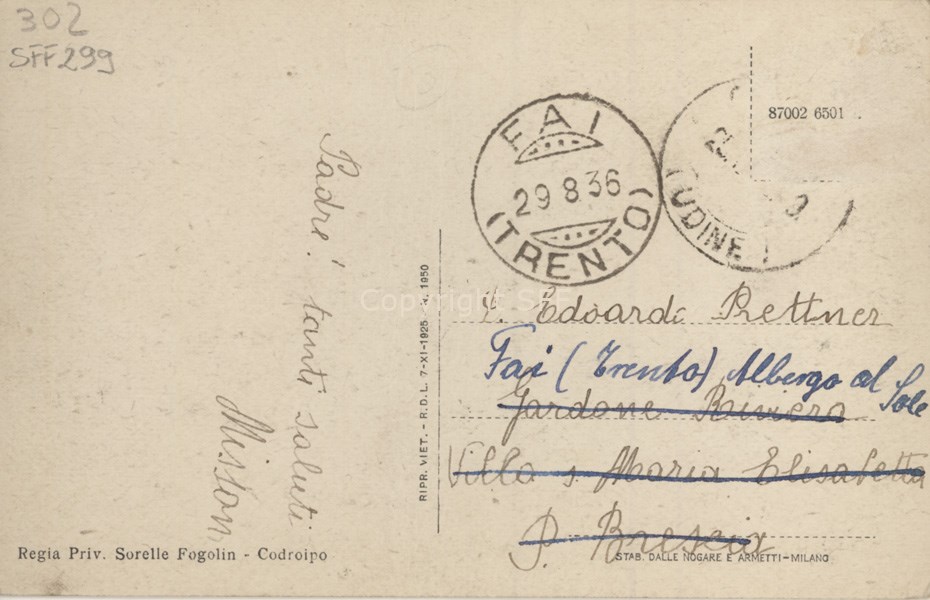 302
SFF 299
87002 6501
FAI
29 8 36
(TRENTO)
UDINE
Padre! tanti saluti
Copyright SFF
RIPR. VIET. - R.D.L. 7-XI-1925 N. 1950
Edoardo Rettner
Fai (Trento) Albergo al Sole
Gardone Riviera
Villa S. Maria Elisabetta
P. Brescia
Regia Priv. Sorelle Fogolin - Codroipo
STAB. DALLE NOGARE E ARMETTI-MILANO